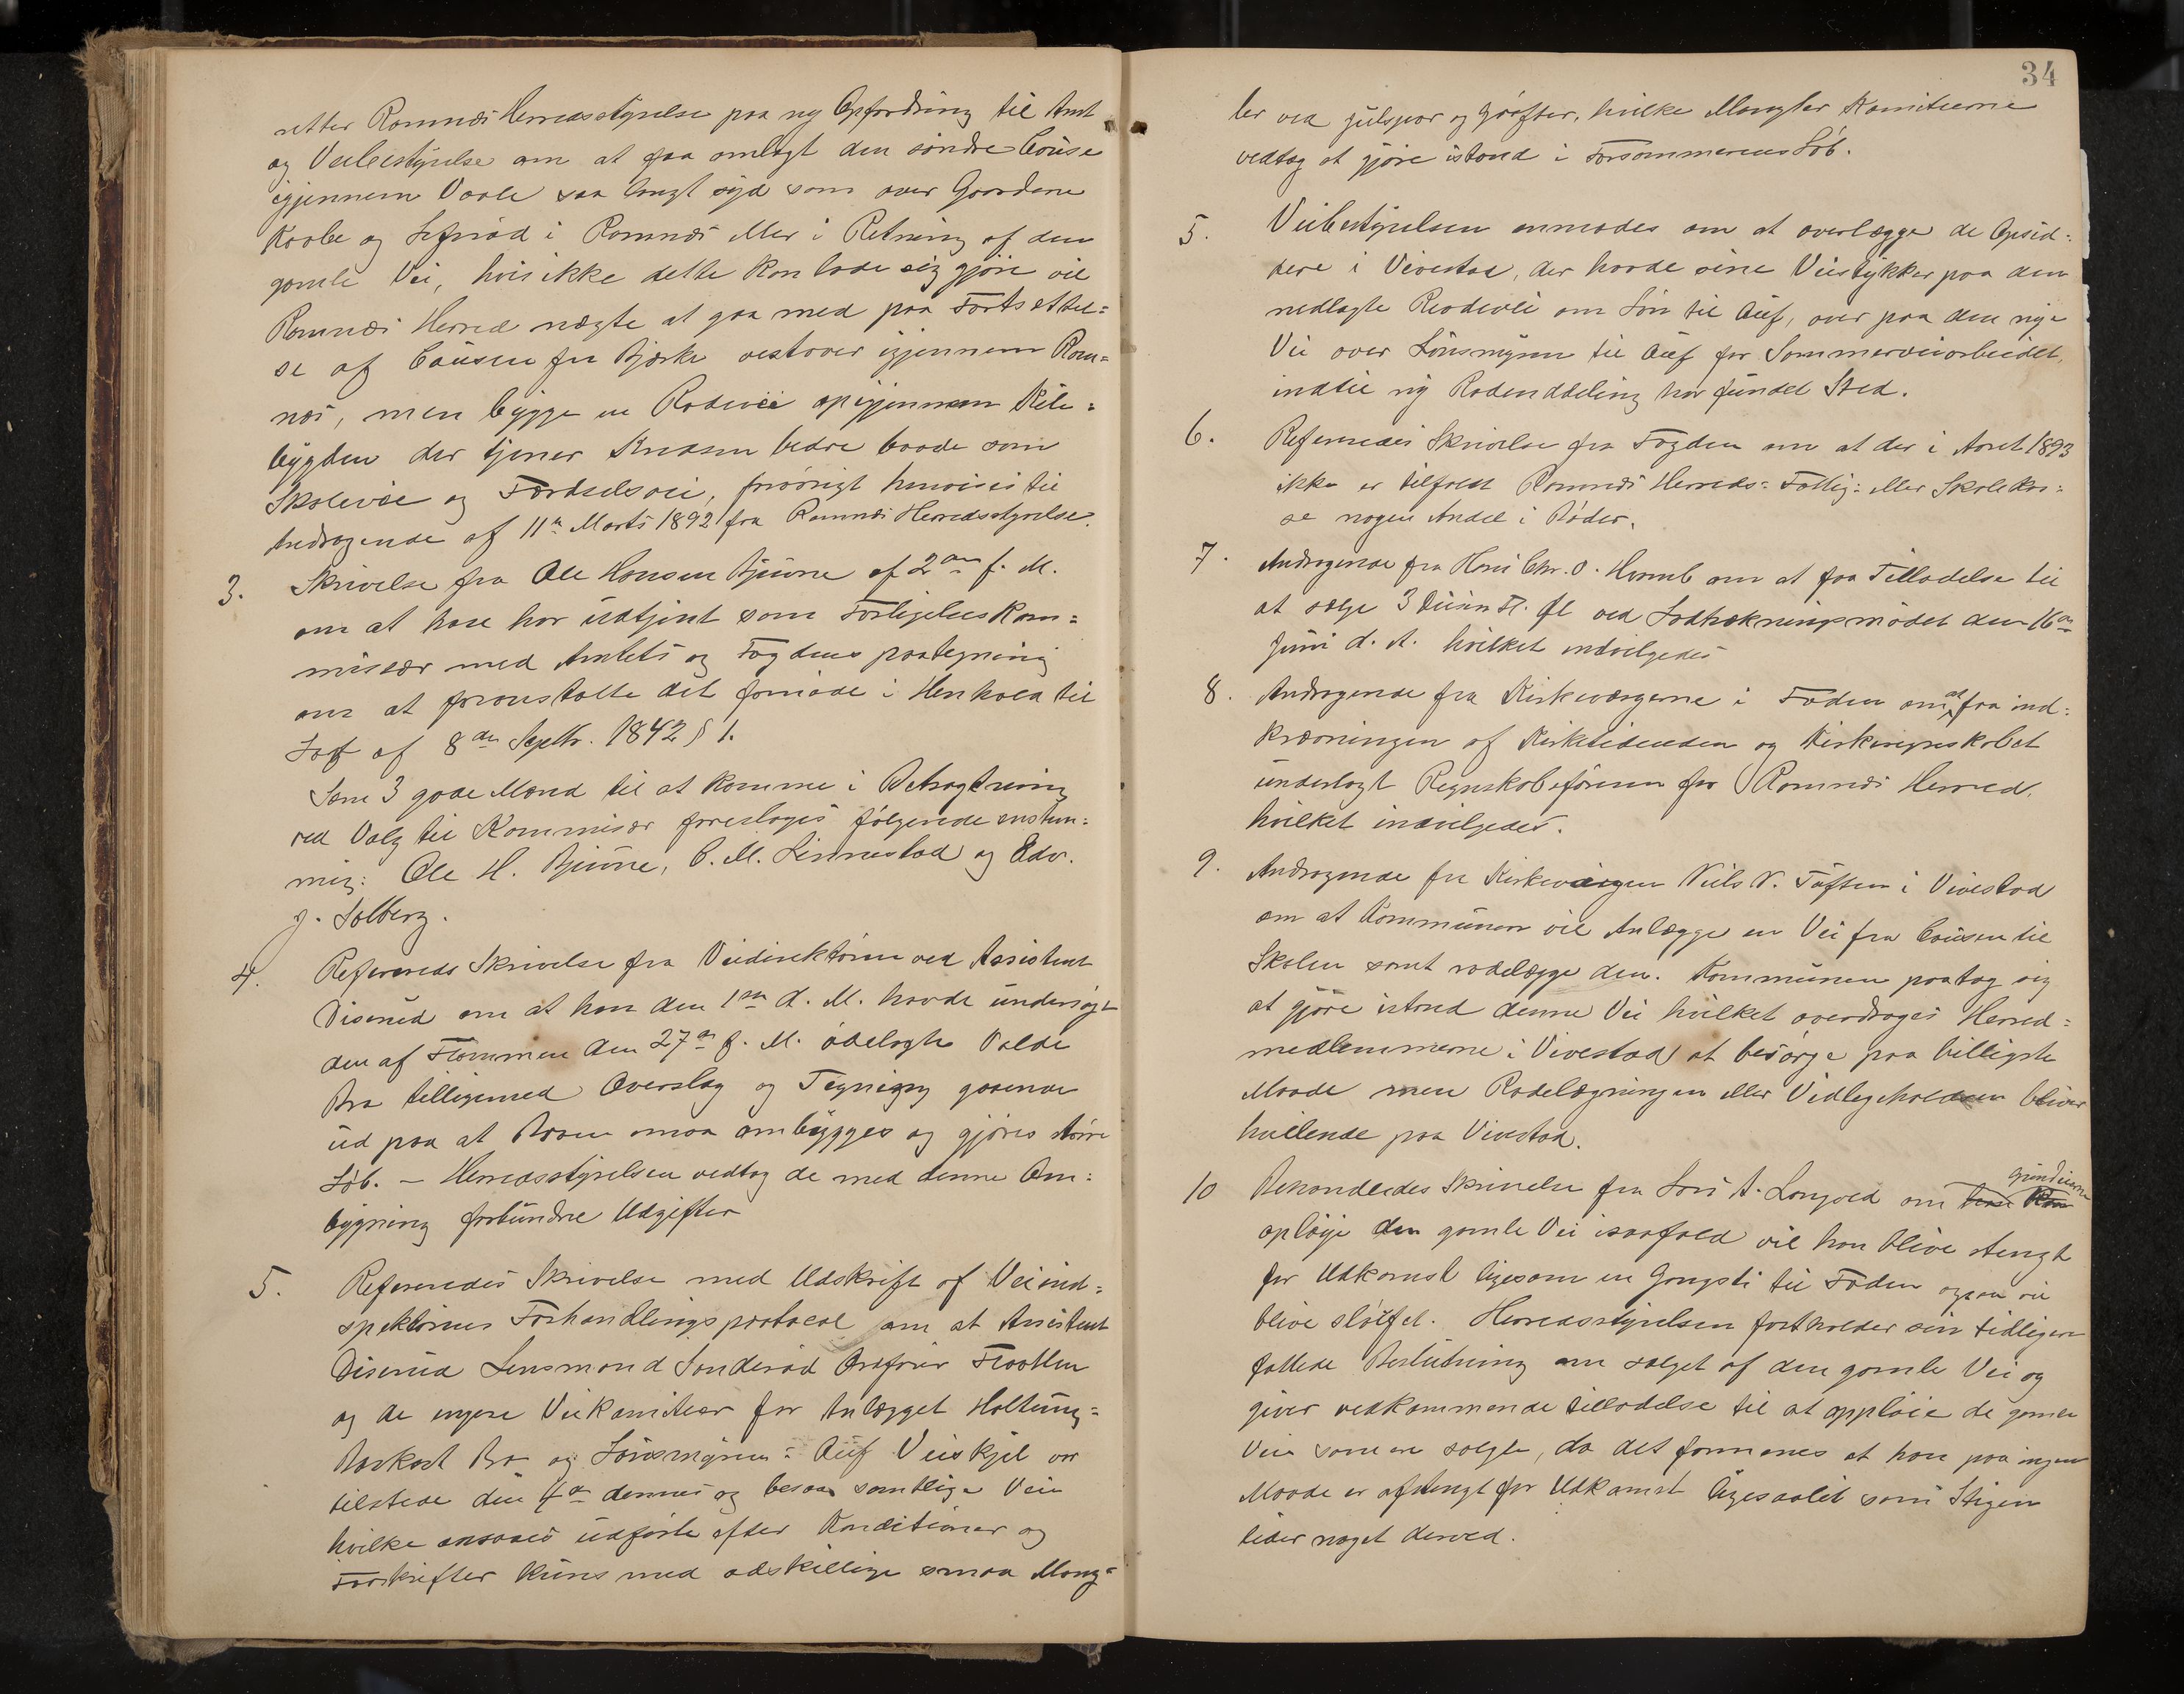 retter Ramnæs Herredsstyrelse paa ny Opfordring til Amt
og Veibestyrelse om at faa omlagt den søndre Cause
igjennem Vaale saa langt syd som over Gaardene
Kaabe og Lefsrød i Ramnæs eller i Retning af den
gamle Vei, hvis ikke dette kan lade sig gjøre vil
Ramnæs Herred nægte at gaa med paa Fortsættel=
se af Causen fra Bjerke vestover igjennem Ram=
næs, men bygge en Rodevei op igjennem Kile=
bygden der tjener Kredsen bedre baade som
Skolevei og Færdselsvei, forøvrigt henvises til
Andragende af 11te Marts 1892 fra Ramnæs Herredsstyrelse.
3. Skrivelse fra Ole Hansen Bjune af 2den f. M.
om at have udtjent som Forligelseskom=
missær med Amtets og Fogdens paategning
om at foranstalte det fornøde i Henhold til
Lov af 8de Septbr. 1842 § 1.
Som 3 gode Mænd til at komme i Betragtning
ved Valg til Kommisær foreslages følgende enstem=
mig: Ole H. Bjune, C. M. Linnestad og Edv.
J. Solberg.
4. Refereredes Skrivelse fra Veidirektøren ved Assistent
Diserud om at han den 1ste d. M. havde undersøgt
den af Flommen den 27de f. M. ødelagte Valde
Bro tilligemed Overslag og Tegning gaaende
ud paa at Broen maa ombygges og gjøres større
Løb. – Herredsstyrelsen vedtog de med denne Om=
bygning forbundne Udgifter
5. Refereredes Skrivelse med Udskrift af Veiind=
spektørens Forhandlingsprotocol om at Assistent
Diserud Lensmand Sønderød Ordfører Flaatten
og de nyere Veikomiteer for Anlægget Holtung=
Bro og Lønsmyren= Auf Veiskjel var
tilstede den 4de dennes og besaa samtlige Veie
hvilke ansaaes udførte efter Konditioner og
Forskrifter kuns med adskillige smaa Mang=
34
ler ved Julspor og Grøfter, hvilke Mangler Komiteerne
vedtog at gjøre istand i Forsommerens Løb.
5. Veibestyrelsen anmodes om at overlægge de Opsid=
dere i Vivestad, der havde sine Veistykker paa den
nedlagte Rodevei om Løn til Auf, over paa den nye
Vei over Lønsmyren til Auf for Sommerveiarbeidet,
indtil ny Rodeinddeling har fundet Sted.
6. Refereredes Skrivelse fra Fogden om at der i Aaret 1893
ikke er tilfaldt Ramnæs Herreds= Fattig= eller Skolekas=
se nogen Andel i Bøder.
7. Andragende fra Hans Chr. O. Horneb om at faa Tilladelse til
at sælge 3 Dusin Fl. Øl ved Lodtrækningsmødet den 16de
Juni d. A. hvilket indvilgedes
8. Andragende fra Kirkeværgerne i Foden om at faa ind=
krævningen af Kirketidenden og Kirkeregnskabet
underlagt Regnskabsføreren for Ramnæs Herred,
hvilket indvilgedes.
9. Andragende fra Kirkeværgen Niels N. Tuften i Vivestad
om at Kommunen vil Anlægge en Vei fra Causen til
Skolen samt rodelægge den. Kommunen paatog sig
at gjøre istand denne Vei hvilket overdroges Herred=
medlemmerne i Vivestad at besørge paa billigste
Maade men Rodelægningen eller Vedligeholden bliver
hvilende paa Vivestad.
10 Behandledes Skrivelse fra Lars A. Langved om grundeierne
opløie den gamle Vei isaafald vil han blive stengt
for Udkomst ligesom en Gangsti til Foden ogsaa vil
blive sløifet. Herredsstyrelsen fastholder sin tidligere
fattede Beslutning om salget af den gamle Vei og
giver vedkommende tilladelse til at oppløie de gamle
Veie som ere solgte, da det formenes at han paa ingen
Maade er afstengt for Udkomst ligesaalit som Stigen
lider noget derved.